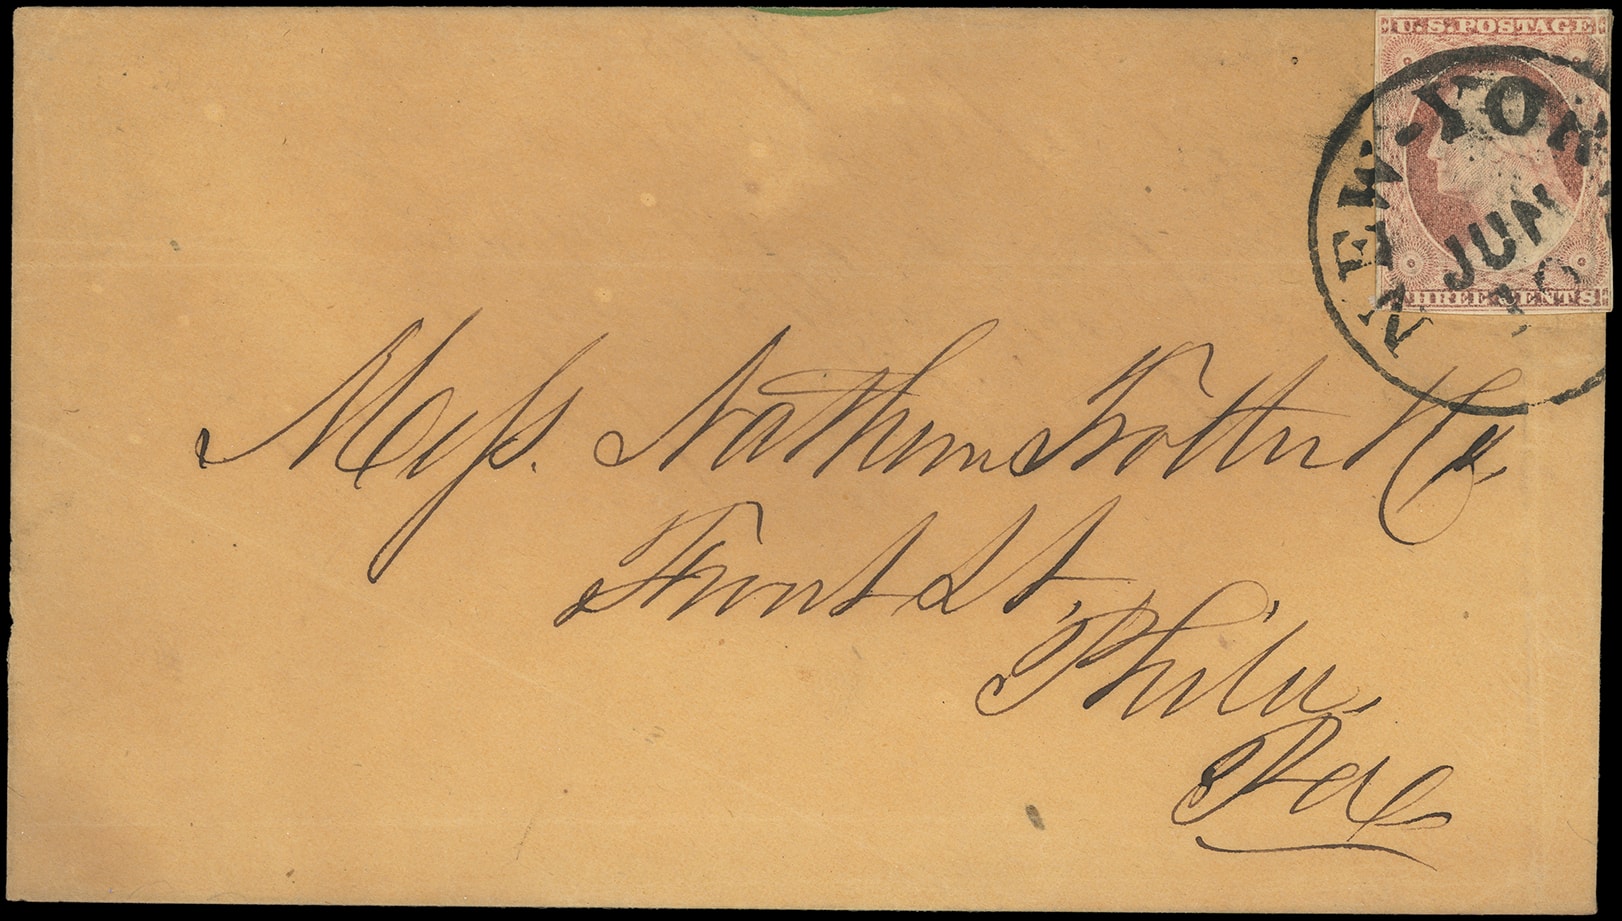 U.S. POSTAGE
NEW-YORK
JUN
THREE CENTS
Mess. Nathan Trotter & Co,
Front St,
Phila.
Pa